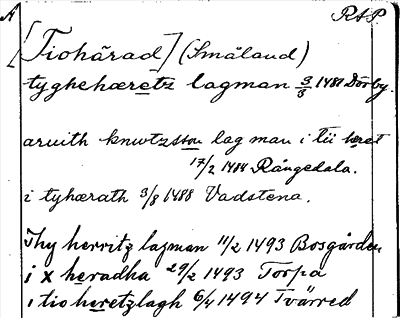 A RAP.
[Tiohärad] (Småland)
tygheheretz lagman 3/3 1481 Dörby.
aruith knwtzsson lagman i tii heret
17/2 1484 Rångedala.
i tyhærath 3/8 1488 Vadstena.
Thy herritz lagman 11/2 1493 Bosgården
i x heradha 29/2 1493 Torpa
i tio heretzlagh 6/4 1494 Tvärred